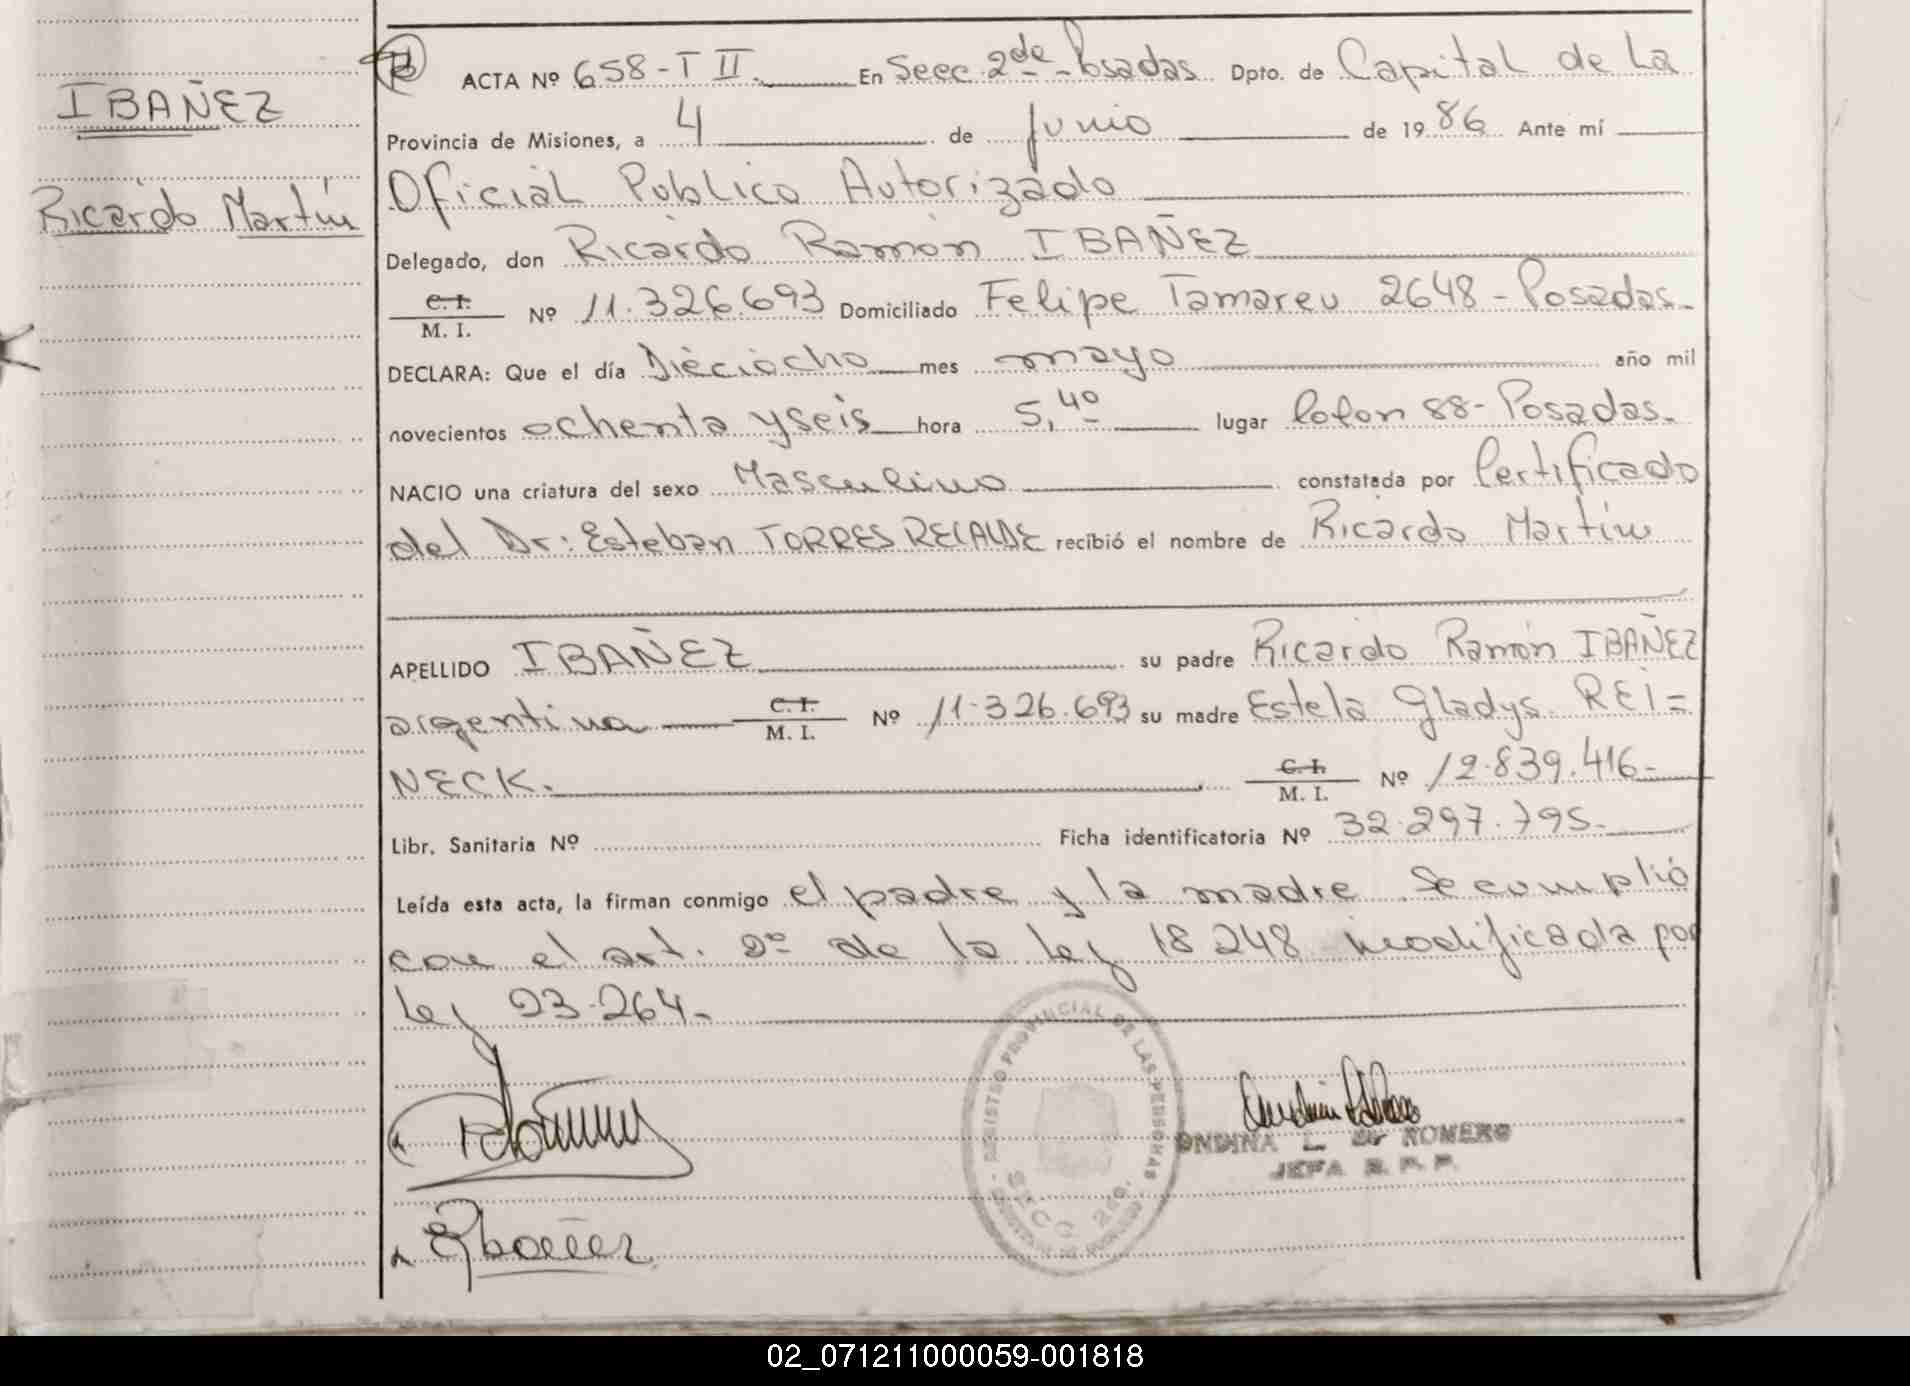 IBAÑEZ
Ricardo Martín
ACTA Nº 658-T II. En Secc 2da Posadas Dpto. de Capital de La
Provincia de Misiones, a 4 de Junio de 1986 Ante mí
Oficial Público Autorizado
Delegado, don Ricardo Ramón IBAÑEZ
C. I.
M. I.
Nº 11.326.693 Domiciliado Felipe Tamareu 2648 - Posadas-
DECLARA: Que el día Dieciocho mes mayo año mil
novecientos ochenta y seis hora 5,40 lugar Colon 88- Posadas-
NACIO una criatura del sexo Masculino constatada por Certificado
del Dr: Esteban TORRES RECALDE recibió el nombre de Ricardo Martín
APELLIDO IBAÑEZ su padre Ricardo Ramón IBAÑEZ
argentina C. I. M. I. Nº 11.326.693 su madre Estela Gladys REI=
NECK. C. I. M. I. Nº 12.839.416-
Libr. Sanitaria Nº Ficha identificatoria Nº 32.297.795-
Leída esta acta, la firman conmigo el padre y la madre Se cumplió
con el art. 2º de la ley 18248 modificada por
ley 23.264-
REGISTRO PROVINCIAL DE LAS PERSONAS
SECC 2da.
ONDINA L. de ROMERO
JEFA R. P. P.
Ibañez
02_071211000059-001818